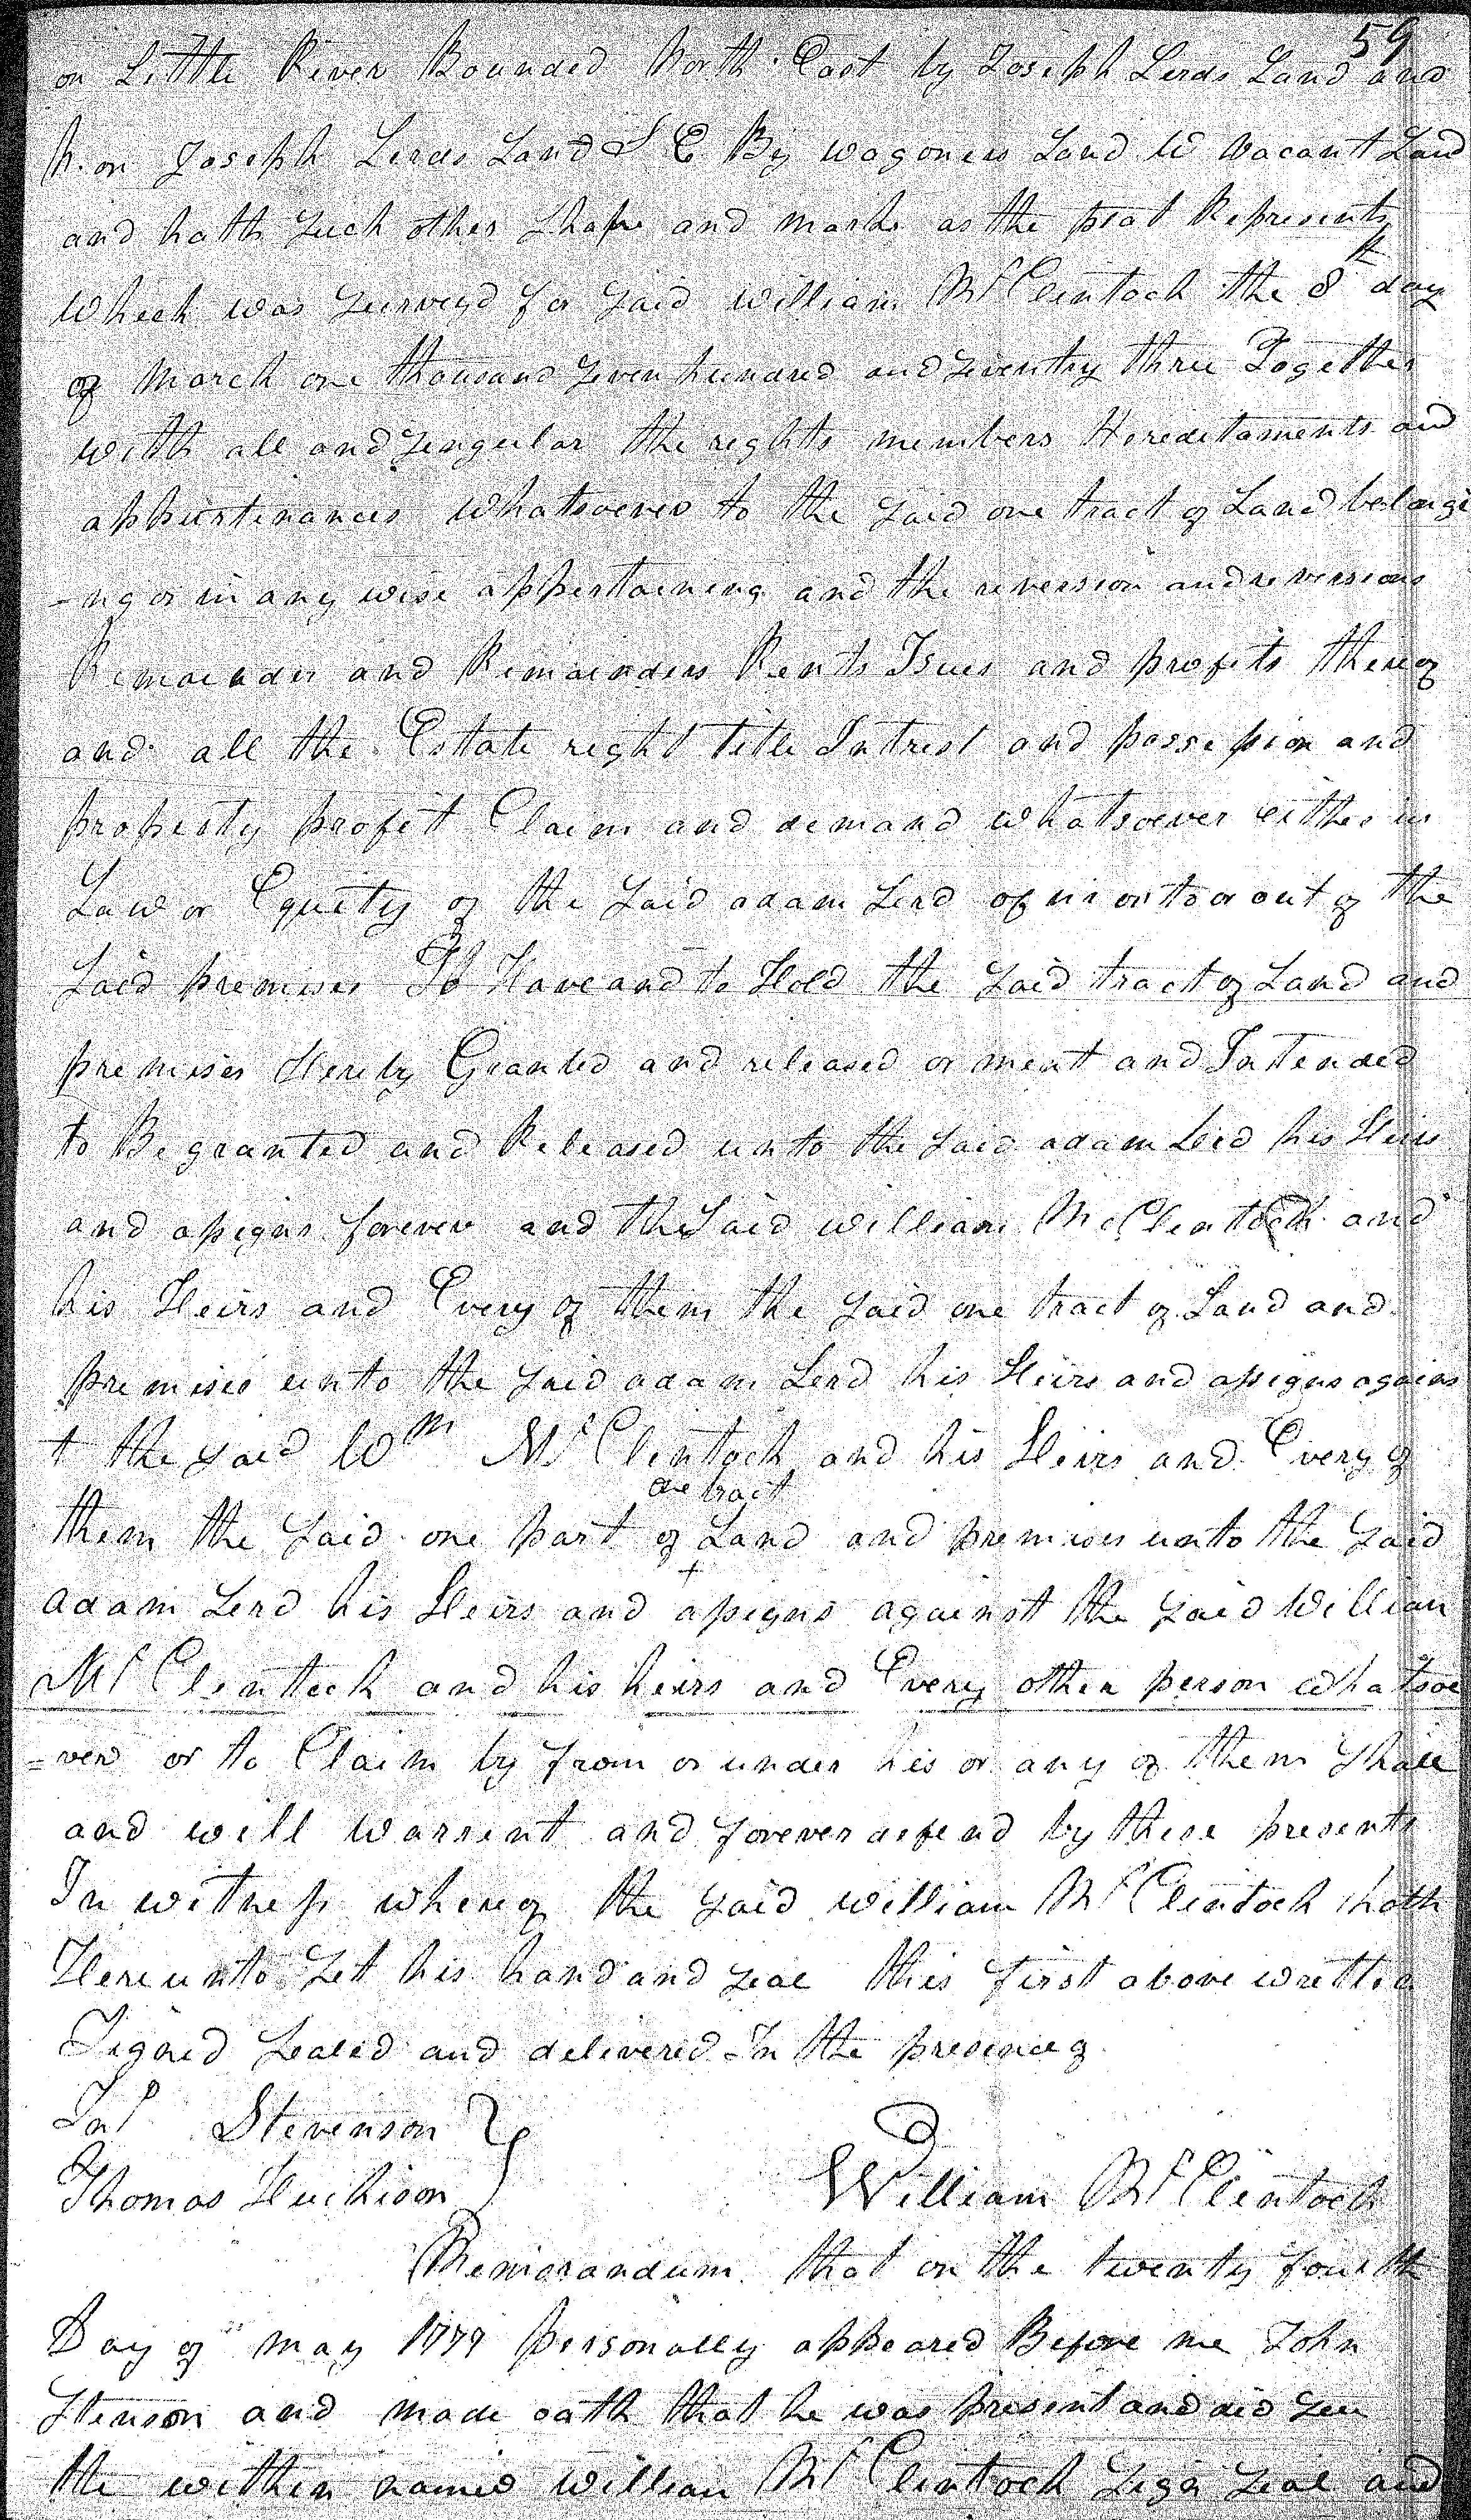 59
on Little River Bounded North East by Joseph Lerds Land and
N. on Joseph Lerds Land S E By wagoners Land W vacant Land
and hath such other Shape and marks as the plat Represents
Which was surveyd for said William McClintock the 8th day
of March one thousand seven hundred and seventy three Together
with all and singular the rights members Hereditaments and
appurtinances whatsoever to the said one tract of Land belongi
-ng or in any wise appertaining and the reversion and reversions
Remainder and Remainders Rents Isues and profits thereof
and all the Estate right title Intrest and possession and
property profit Claim and demand whatsoever either in
Law or Equity of the said adam Lerd of in or to or out of the
said premises To Have and to Hold the said tract of Land and
premises Hereby Granted and released or ment and Intended
to Be granted and Released unto the said adam Lerd his Heirs
and assigns forever and the said William McClintock and
his Heirs and Every of them the said one tract of Land and
premises unto the said adam Lerd his Heirs and assigns agains
t the said Wm McClintock and his Heirs and Every of
one tract
them the said one part of Land and premises unto the said
+
adam Lerd his Heirs and assigns against the said William
McClintock and his heirs and Every other person whatsoe
=ver or to Claim by from or under his or any of them shall
and will warrent and forever defend by these presents
In witness whereof the said William McClintock hath
Hereunto set his hand and seal this first above written
Signed Sealed and delivered In the presence of
Jno Stevenson }
Thomas Huchison
William McClintock
Memorandum that on the twenty fourth
Day of may 1779 personally appeared Before me John
Stenson and made oath that he was present and did see
the within named William McClintock sign seal and